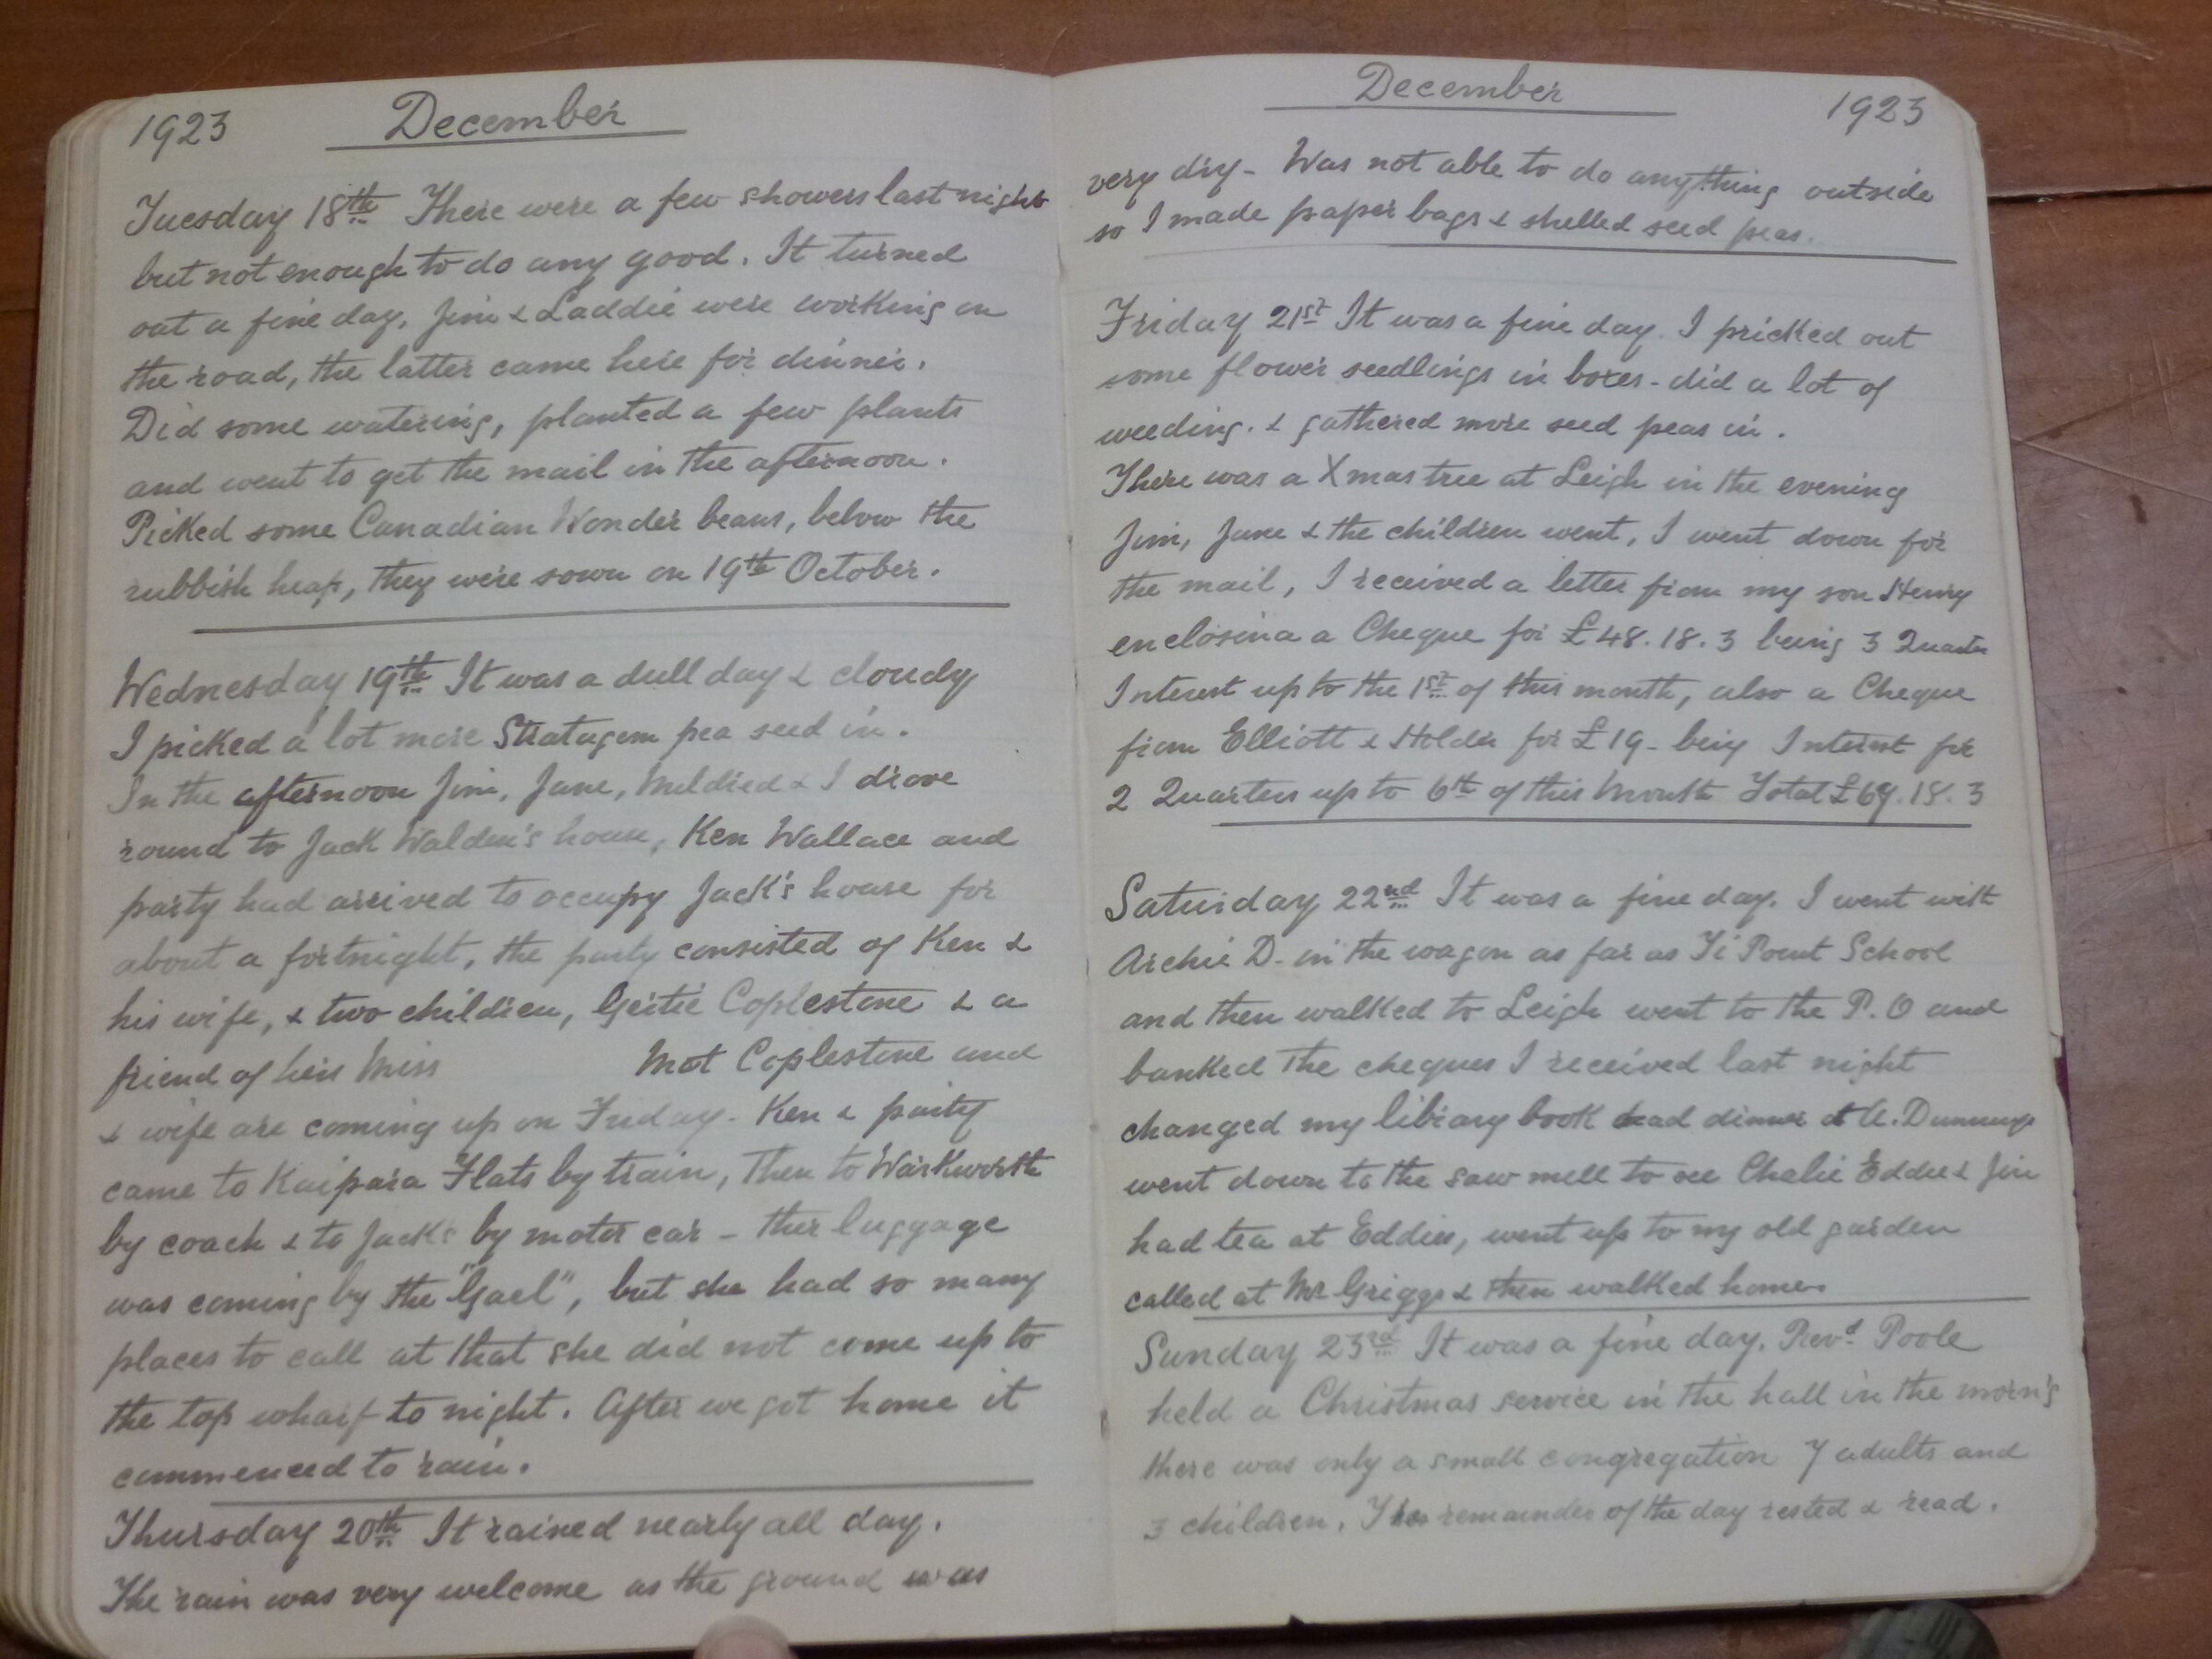 1923 December
Tuesday 18th There were a few showers last night
but not enough to do any good. It turned
out a fine day. Jim & Laddie were working on
the road, the latter came here for dinner.
Did some watering, planted a few plants
and went to get the mail in the afternoon.
Picked some Canadian Wonder beans, below the
rubbish heap, they were sown on 19th October.
Wednesday 19th It was a dull day & cloudy
I picked a lot more Stratagem pea seed in.
In the afternoon Jim, Jane, Mildred & I drove
round to Jack Walden's house, Ken Wallace and
party had arrived to occupy Jack's house for
about a fortnight, the party consisted of Ken &
his wife, & two children, Gertie Coplestone & a
friend of hers Miss Mot Coplestone and
& wife are coming up on Friday. Ken & party
came to Kaipara Flats by train, then to Warkworth
by coach & to Jacks by motor car - ther luggage
was coming by the "Gael", but she had so many
places to call at that she did not come up to
the top wharf to night. After we got home it
commenced to rain.
Thursday 20th It rained nearly all day.
The rain was very welcome as the ground was
December 1923
very dry - Was not able to do anything outside
so I made paper bags & shelled seed peas.
Friday 21st It was a fine day. I pricked out
some flower seedlings in boxes - did a lot of
weeding. & gathered more seed peas in.
There was a Xmas tree at Leigh in the evening
Jim, Jane & the children went, I went down for
the mail, I received a letter from my son Henry
enclosina a Cheque for £48.18.3 being 3 Quarter
Interest up to the 1st of this month, also a Cheque
from Elliott & Holder for £19 - being Interest for
2 Quarters up to 6th of this Month Total £67.18.3
Saturday 22nd It was a fine day. I went with
Archie D. in the wagon as far as Ti Point School
and then walked to Leigh went to the P.O and
banked the cheques I received last night
changed my library book had dinner at A. Dunnings
went down to the saw mill to see Chalie Eddie & Jim
had tea at Eddies, went up to my old garden
called at Mr Griggs & then walked home.
Sunday 23rd It was a fine day. Revd. Poole
held a Christmas service in the hall in the morn'g
there was only a small congregation 7 adults and
3 children. The remainder of the day rested & read.